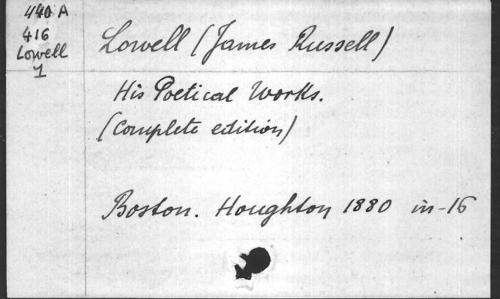 440 A
416
Lowell
1
Lowell (James Russell)
His Poetical Works.
(Complete edition)
Boston. Houghton 1880 in-16